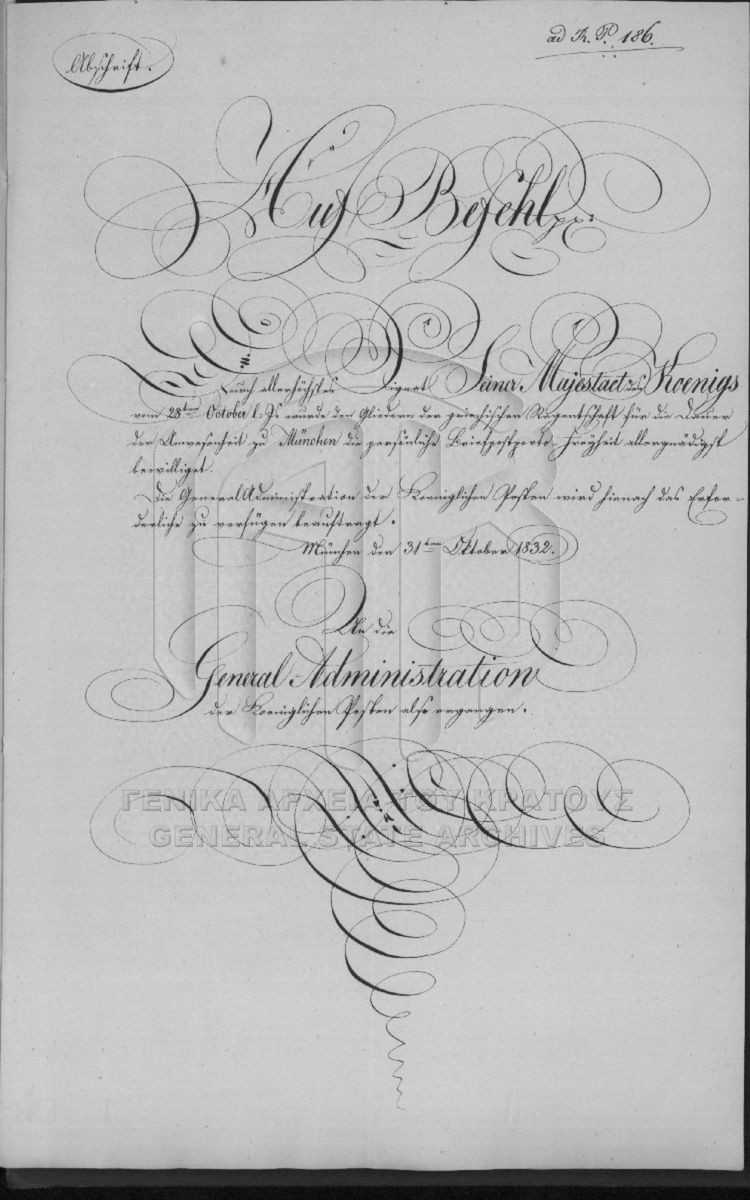 ad R. P. 186.
Abschrift.
Auf Befehl pp:
Durch allerhöchstes Signat Seiner Majestaet des Koenigs
vom 28ten October l. Js wurde den Gliedern der griechischen Regentschaft für die Dauer
der Anwesenheit zu München die persönliche Briefpostporto-Freyheit allergnädigst
bewilliget.
Die General Administration der Koeniglichen Posten wird hienach das Erfor-
derliche zu verfügen beauftragt.
München den 31ten Oktober 1832.
An die
General Administration
der Koeniglichen Posten also ergangen.
ΓΕΝΙΚΑ ΑΡΧΕΙΑ ΤΟΥ ΚΡΑΤΟΥΣ
GENERAL STATE ARCHIVES